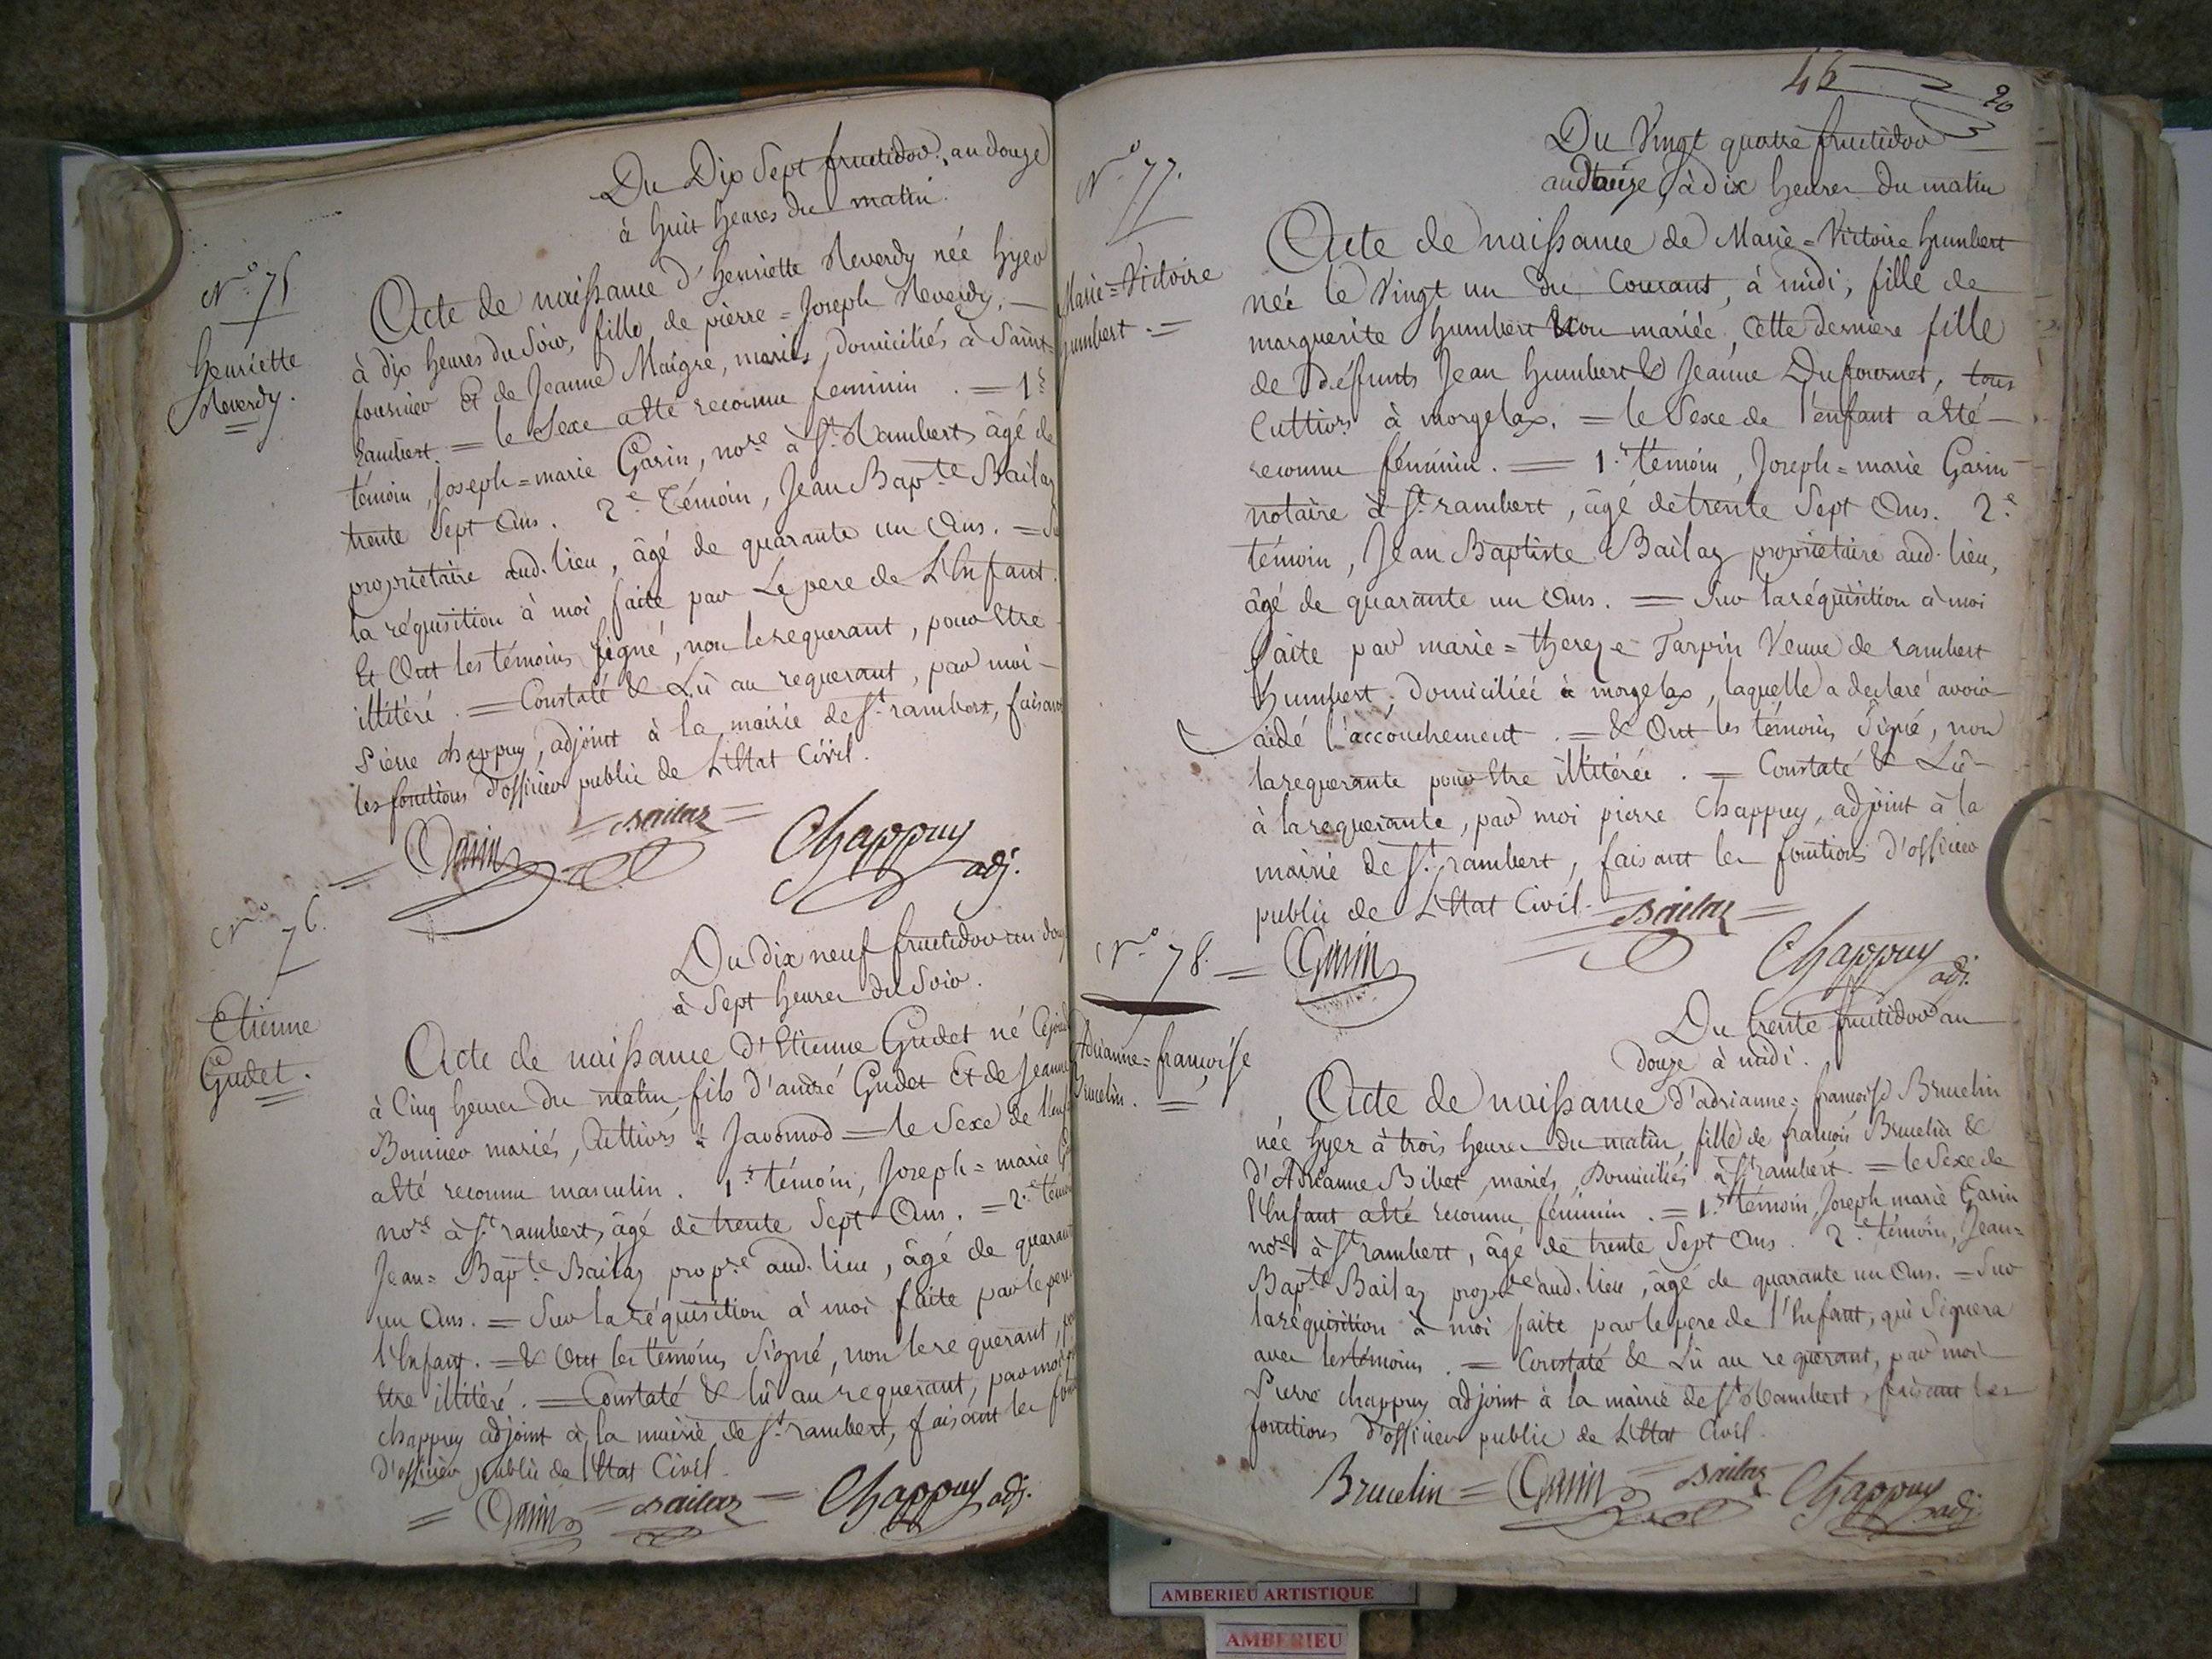 Du Dix Sept fructidor, an douze
à huit heures du matin.
N.° 75
henriette
Reverdy.
Acte de naissance d'henriette Reverdy née hyer
à dix heures du Soir, fille de pierre = Joseph Reverdy,
fournier Et de Jeanne Maigre, mariés, domiciliés à Saint=
Rambert. = le Sexe a été reconnu feminin. = 1.er
témoin, Joseph = marie Garin, no.re à S.t Rambert, âgé de
trente Sept Ans. 2.e Témoin, Jean Bap.te Bailaz
propriétaire aud. lieu, âgé de quarante un Ans. =
la réquisition à moi faite par Le pere de L'Enfant.
Et Ont les témoins signé, non le requerant, pour Etre
illitéré. = Constaté & Lû au requerant, par moi
Pierre chappuy, adjoint à la mairie de S.t rambert, faisant
les fonctions d'officier public de L'Etat Civil.
= Garin = Bailaz = Chappuy
adj.
N.° 76.
Etienne
Gudet.
Du dix neuf fructidor an
à Sept heures du Soir.
Acte de naissance d'Etienne Gudet né
à Cinq heures du matin, fils d'andré Gudet Et de Jeanne
mariés, Culttivrs à Javornod = le Sexe de
a été reconnu masculin. 1.er témoin, Joseph = marie
no.re à S.t rambert, âgé de trente Sept Ans. = 2.e
Jean = Bap.te Bailaz prop.re aud. lieu, âgé de
un Ans. = Sur la réquisition à moi faite par le pere
l'Enfant. = & Ont les témoins Signé, non le requerant,
Etre illitéré. = Constaté & lû au requerant, par moi
chappuy adjoint à la mairie de S.t rambert, faisant les
d'officier public de l'Etat Civil.
= Garin = Bailaz = Chappuy adj.
46
20
Du Vingt quatre fructidor
an douze, à dix heures du matin
N.° 77.
Marie = Victoire
humbert. =
Acte de naissance de Marie = Victoire humbert
née le Vingt un du Courant, à midi, fille de
marguerite humbert Non mariée, Cette derniere fille
de Défunts Jean humbert & Jeanne Dufournet, tous
Culttivrs à morgelax. = le Sexe de l'enfant a été
reconnu féminin. = 1.er témoin, Joseph = marie Garin
notaire à S.t rambert, âgé de trente Sept Ans. 2.e
témoin, Jean Baptiste Bailaz propriétaire aud. lieu,
âgé de quarante un Ans. = Sur la réquisition à moi
faite par marie = thereze Tarpin Veuve de rambert
humbert, domiciliée à morgelax, laquelle a declaré avoir
aidé l'accouchement. = & Ont les témoins Signé, non
la requerante pour Etre illitérée. = Constaté & Lû
à la requerante, par moi pierre Chappuy, adjoint à la
mairie de S.t rambert, faisant les fonctions d'officier
public de L'Etat Civil.
= Garin = Bailaz = Chappuy
adj.
N.° 78.
Adrianne = françoise
Brucelin. =
Du trente fructidor an
douze à midi.
Acte de naissance d'adrianne = françoise Brucelin
née hyer à trois heures du matin, fille de françois Brucelin &
d'Adrianne Bibet mariés, Domiciliés à S.t rambert. = le Sexe de
l'Enfant a été reconnu féminin. = 1.er témoin, Joseph marie Garin
no.re à S.t rambert, âgé de trente Sept Ans. 2.e témoin, Jean =
Bap.te Bailaz prop.re aud. lieu, âgé de quarante un Ans. = Sur
la réquisition à moi faite par le pere de l'Enfant, qui Signera
avec les témoins. = Constaté & Lû au requerant, par moi
Pierre chappuy adjoint à la mairie de S.t Rambert, faisant les
fonctions d'officier public de L'Etat Civil.
Brucelin = Garin = Bailaz Chappuy
adj.
AMBERIEU ARTISTIQUE
AMBERIEU